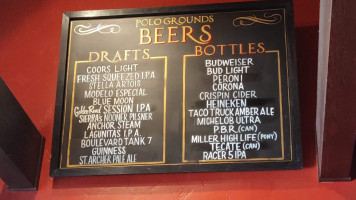 POLO GROUNDS
BEERS
DRAFTS
COORS LIGHT
FRESH SQUEEZED I.P.A
STELLA ARTOIS
MODELO ESPECIAL
BLUE MOON
SESSION I.P.A
SIERRA NOONER PILSNER
ANCHOR STEAM
LAGUNITAS I.P.A
BOULEVARD TANK 7
GUINNESS
ST. ARCHER PALE ALE
BOTTLES
BUDWEISER
BUD LIGHT
PERONI
CORONA
CRISPIN CIDER
HEINEKEN
TACO TRUCK AMBER ALE
MICHELOB ULTRA
P.B.R. (CAN)
MILLER HIGH LIFE (PONY)
TECATE (CAN)
RACER 5 IPA